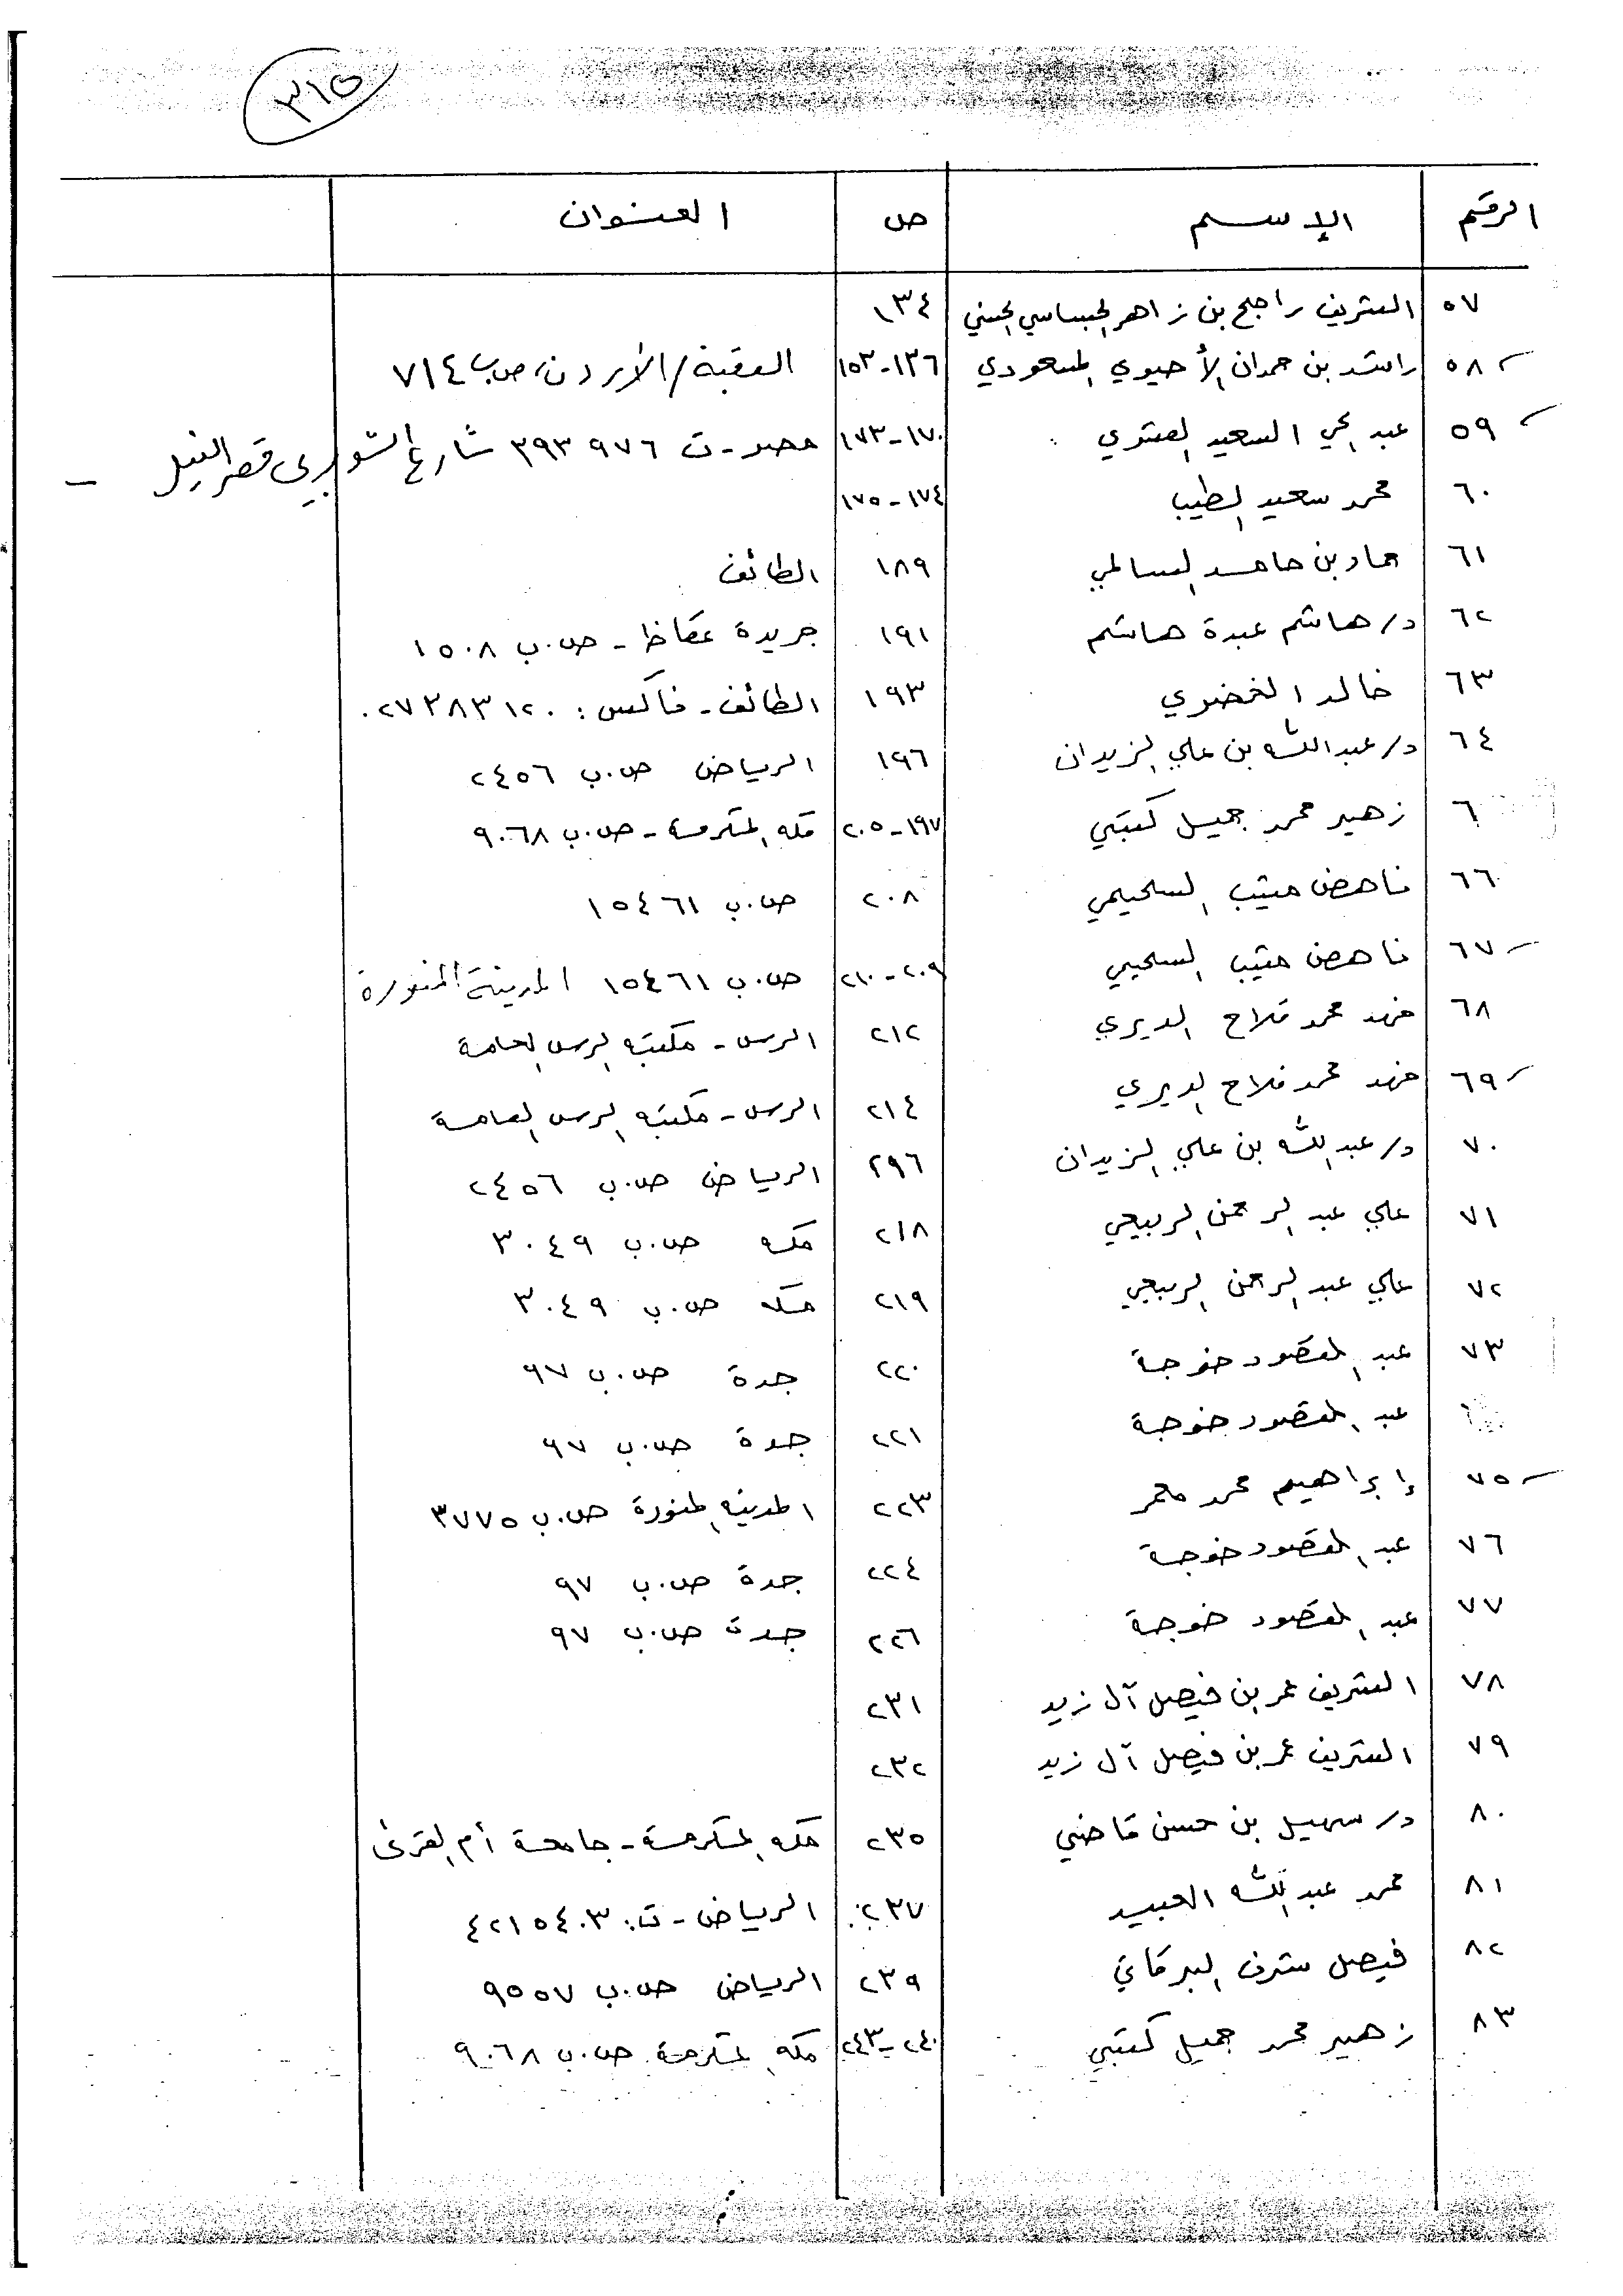 ٣١٥
الرقم الإسم ص العنوان
٥٧ الشريف راجح بن زاهر الحسني ١٣٤
٥٨ راشد بن حمدان الأحيوي المسعودي ١٣٦-١٥٣ العقبة/الأردن، ص.ب ٧١٤
٥٩ عبد الحي السعيد العنتري ١٧٠-١٧٣ مصر - ت ٣٩٣٩٧٦ شارع الشواربي قصر النيل -
٦٠ محمد سعيد الطيب ١٧٤-١٧٥
٦١ حماد بن حامد السالمي ١٨٩ الطائف
٦٢ د/ هاشم عبدة هاشم ١٩١ جريدة عكاظ - ص.ب ١٥٠٨
٦٣ خالد الخضري ١٩٣ الطائف - فاكس: ٠٢٧٣٨٣١٢٠
٦٤ د/ عبدالله بن علي الزيدان ١٩٦ الرياض ص.ب ٢٤٥٦
٦ زهير محمد جميل كتبي ١٩٧-٢٠٥ مكه المكرمة - ص.ب ٩٠٦٨
٦٦ ناهض متيب السحيمي ٢٠٨ ص.ب ١٥٤٦١
٦٧ ناهض متيب السحيمي ٢٠٩-٢١٠ ص.ب ١٥٤٦١ المدينة المنورة
٦٨ فهد محمد فلاح الديري ٢١٢ الرس - مكتبه الرس العامة
٦٩ فهد محمد فلاح الديري ٢١٤ الرس - مكتبه الرس العامة
٧٠ د/ عبدالله بن علي الزيدان ٢٩٦ الرياض ص.ب ٢٤٥٦
٧١ علي عبد الرحمن الربيعي ٢١٨ مكه ص.ب ٣٠٤٩
٧٢ علي عبد الرحمن الربيعي ٢١٩ مكه ص.ب ٣٠٤٩
٧٣ عبد المقصود خوجة ٢٢٠ جدة ص.ب ٩٧
عبد المقصود خوجة ٢٢١ جدة ص.ب ٩٧
٧٥ إبراهيم محمد معمر ٢٢٣ المدينه المنورة ص.ب ٣٧٧٥
٧٦ عبد المقصود خوجة ٢٢٤ جدة ص.ب ٩٧
٧٧ عبد المقصود خوجة ٢٢٦ جدة ص.ب ٩٧
٧٨ الشريف عمر بن فيصل آل زيد ٢٣١
٧٩ الشريف عمر بن فيصل آل زيد ٢٣٢
٨٠ د/ سهيل بن حسن قاضي ٢٣٥ مكه المكرمة - جامعة أم القرى
٨١ محمد عبدالله الحبيد ٢٣٧ الرياض - ت: ٤٢١٥٤٠٣
٨٢ فيصل شرف البركاتي ٢٣٩ الرياض ص.ب ٩٥٥٧
٨٣ زهير محمد جميل كتبي ٢٤٠-٢٤٣ مكه المكرمة ص.ب ٩٠٦٨